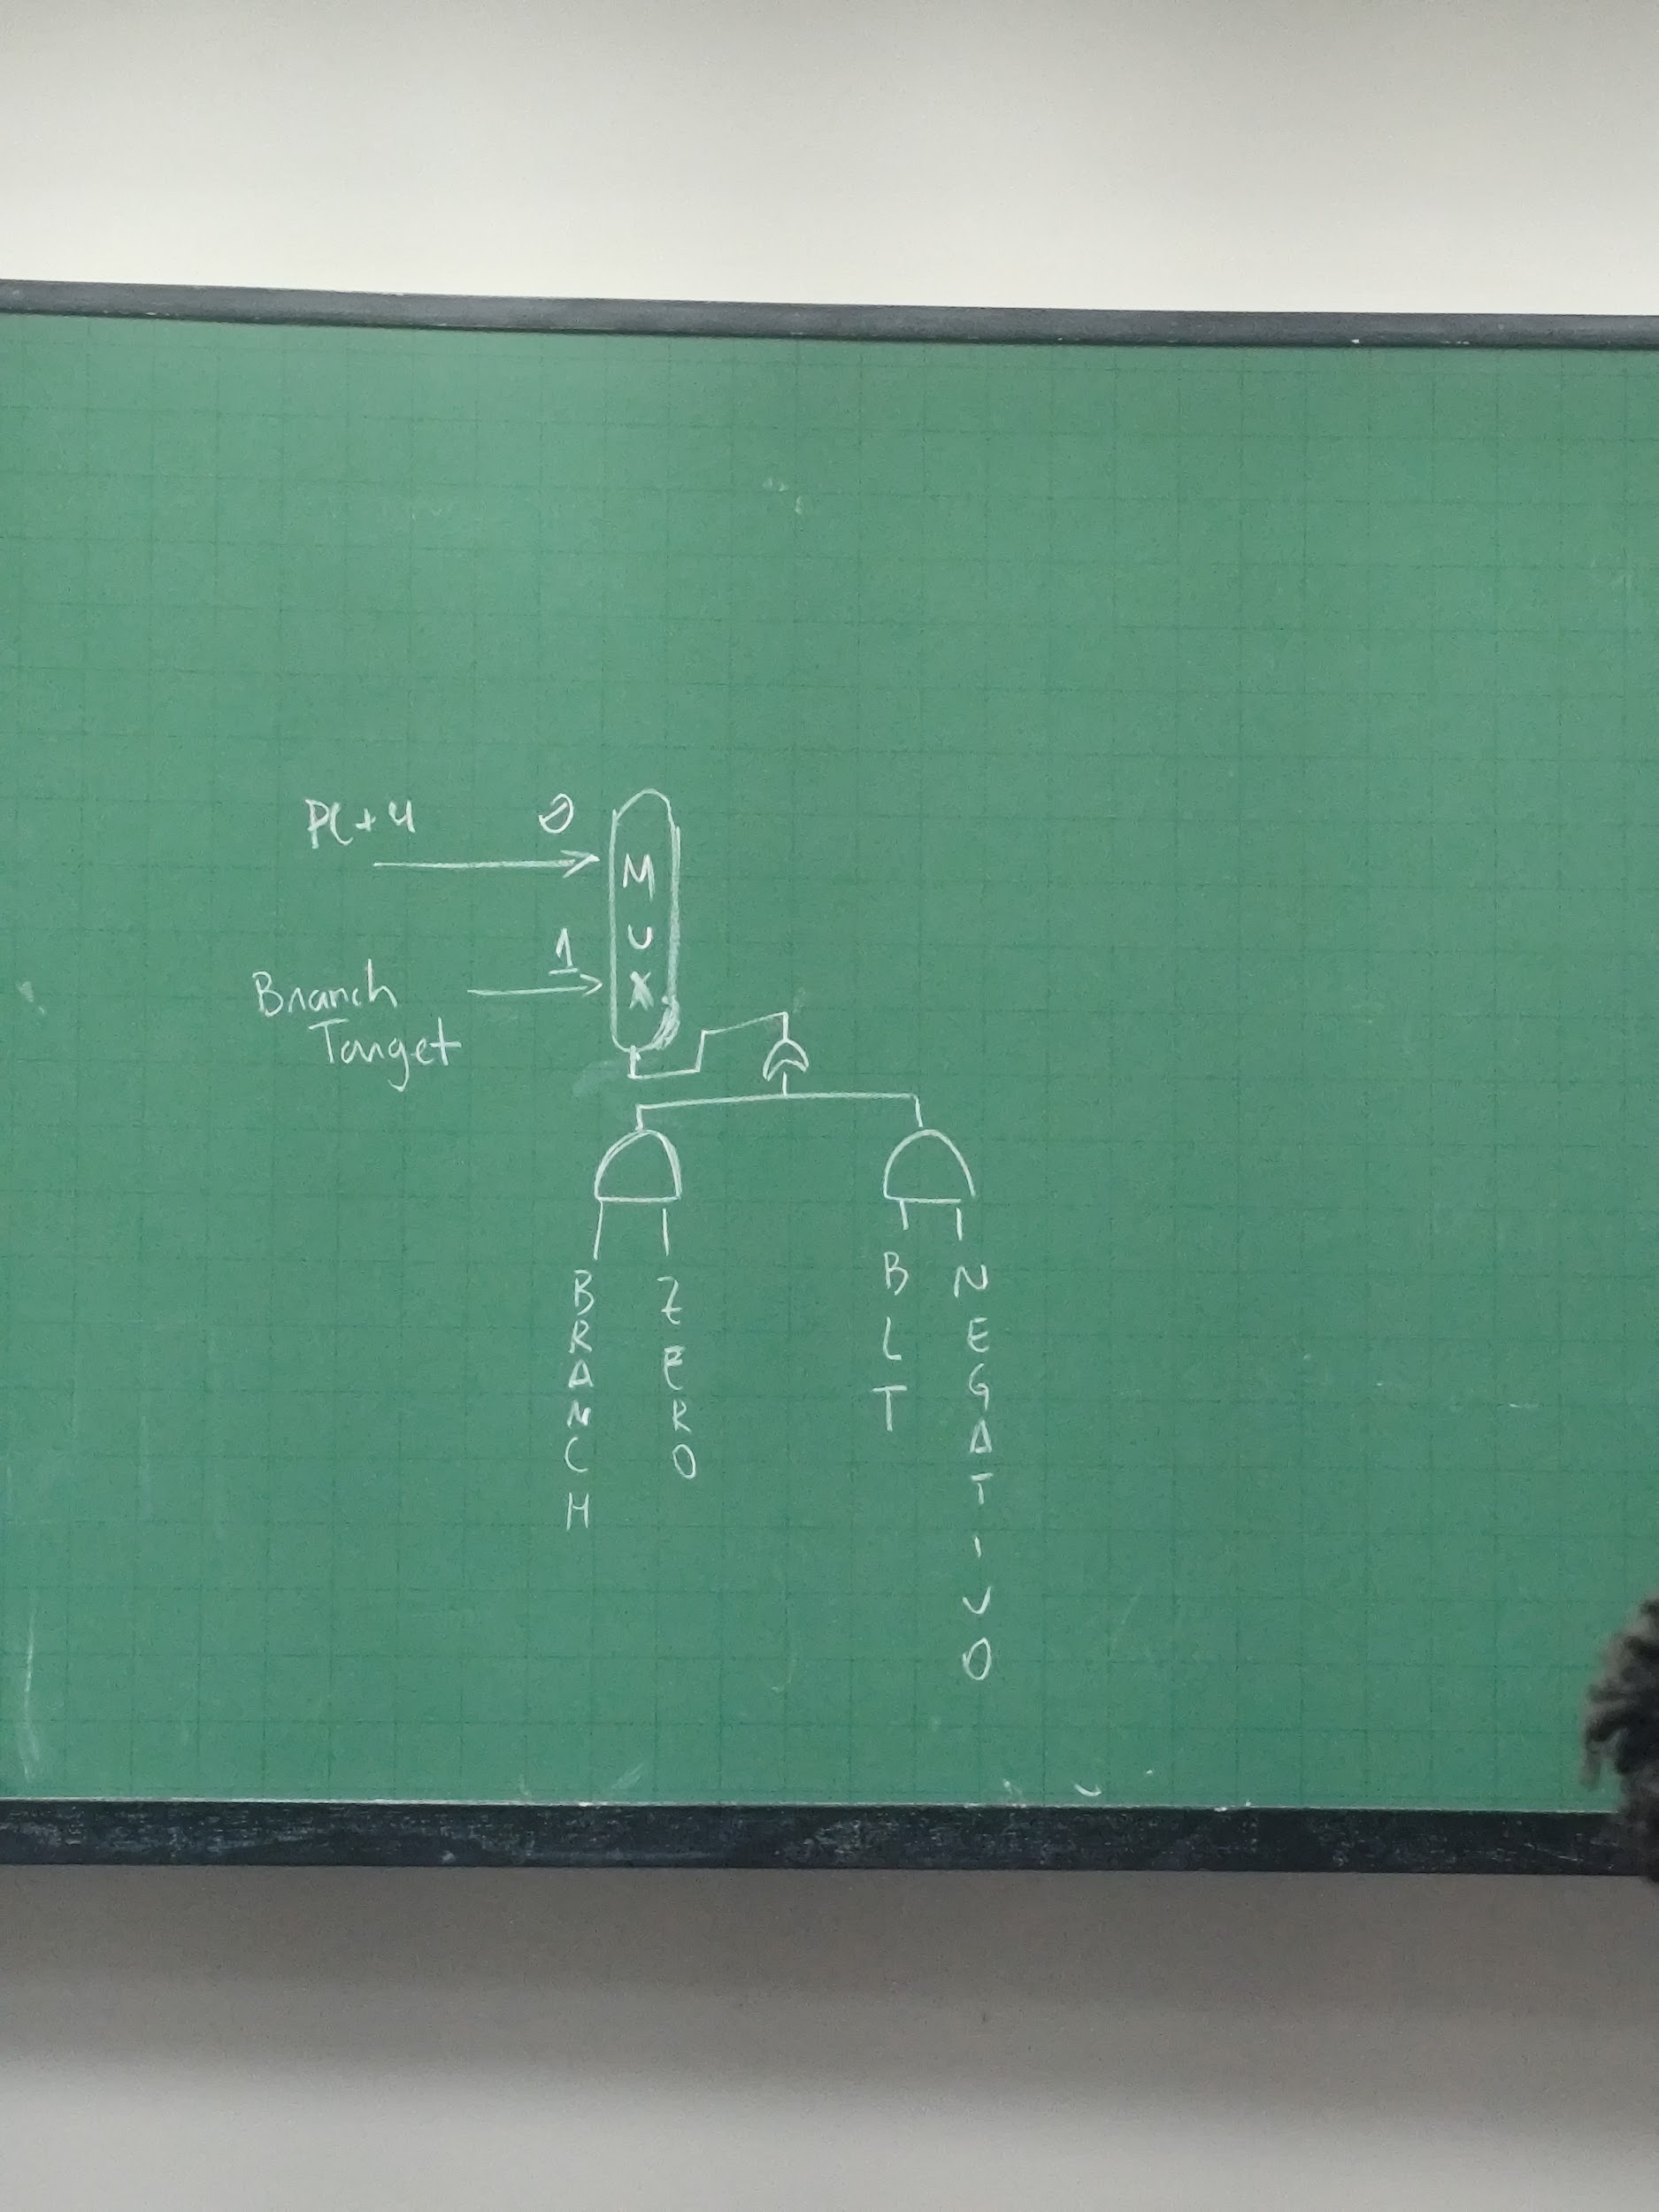 PC+4
0
MUX
1
Branch
Target
BRANCH
ZERO
BLT
NEGATIVO